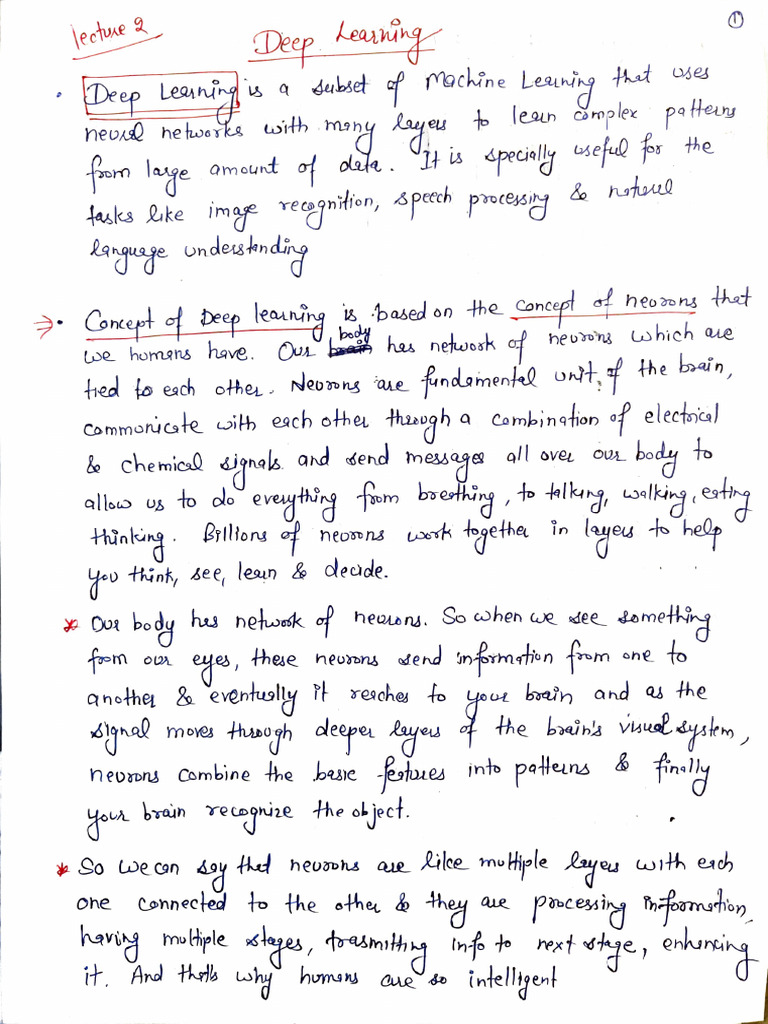 lecture 2
Deep Learning
①
• Deep Learning is a subset of Machine Learning that uses
neural networks with many layers to learn complex patterns
from large amount of data. It is specially useful for the
tasks like image recognition, speech processing & natural
language understanding
⇒ • Concept of Deep learning is based on the concept of neurons that
we humans have. Our body has network of neurons which are
tied to each other. Neurons are fundamental unit of the brain,
communicate with each other through a combination of electrical
& chemical signals and send messages all over our body to
allow us to do everything from breathing, to talking, walking, eating
thinking. Billions of neurons work together in layers to help
you think, see, learn & decide.
* Our body has network of neurons. So when we see something
from our eyes, these neurons send information from one to
another & eventually it reaches to your brain and as the
signal moves through deeper layers of the brain's visual system,
neurons combine the basic features into patterns & finally
your brain recognize the object.
* So we can say that neurons are like multiple layers with each
one connected to the other & they are processing information,
having multiple stages, trasmitting info to next stage, enhancing
it. And that's why humans are so intelligent